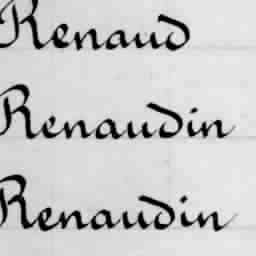 Renaud
Renaudin
Renaudin